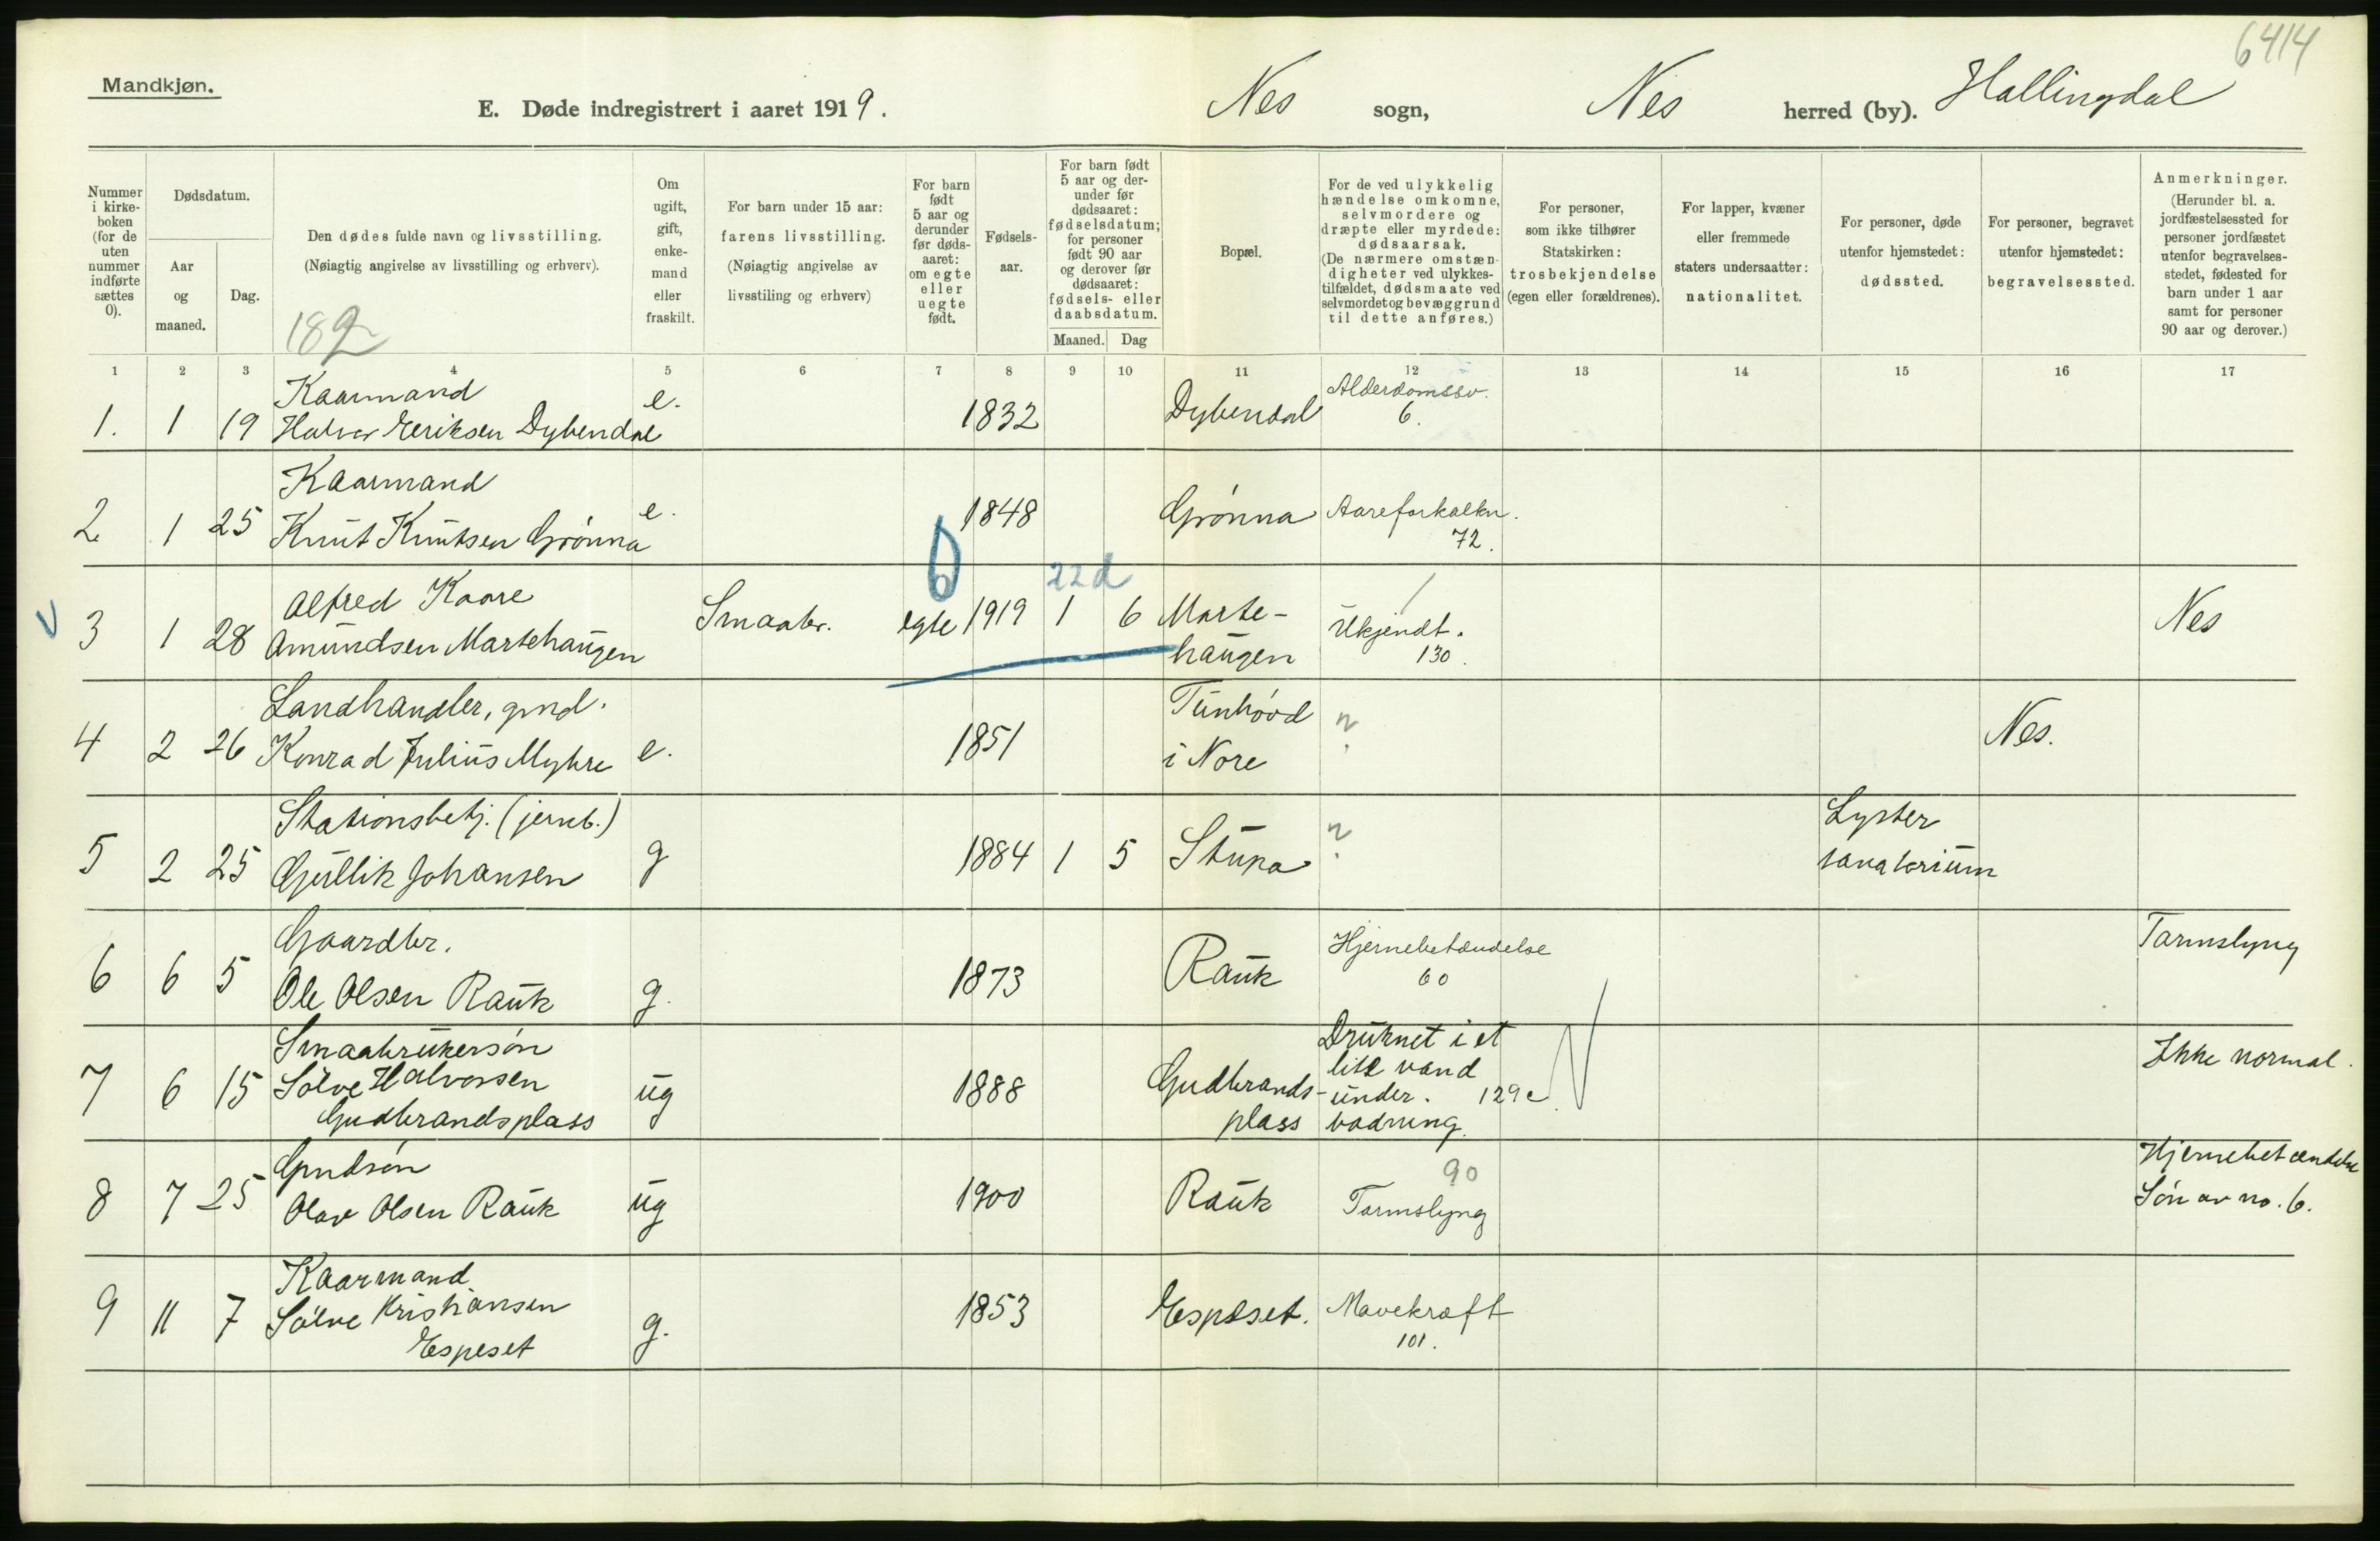 6414
Mandkjøn.
E. Døde indregistrert i aaret 1919. Nes sogn, Nes herred (by). Hallingdal
Nummer i kirke-boken (for de uten nummer indførte sættes 0).
Dødsdatum.
Aar og maaned.
Dag.
Den dødes fulde navn og livsstilling.
(Nøiagtig angivelse av livsstilling og erhverv).
189
Om ugift, gift, enke-mand eller fraskilt.
For barn under 15 aar: farens livsstilling.
(Nøiagtig angivelse av livsstiling og erhverv)
For barn født 5 aar og derunder før døds-aaret: om egte eller uegte født.
Fødsels-aar.
For barn født 5 aar og der-under før dødsaaret: fødselsdatum; for personer født 90 aar og derover før dødsaaret: fødsels- eller daabsdatum.
Maaned. Dag
Bopæl.
For de ved ulykkelig hændelse omkomne, selvmordere og dræpte eller myrdede: dødsaarsak.
(De nærmere omstæn-digheter ved ulykkes-tilfældet, dødsmaate ved selvmordet og bevæggrund til dette anføres.)
For personer, som ikke tilhører Statskirken: trosbekjendelse (egen eller forældrenes).
For lapper, kvæner eller fremmede staters undersaatter: nationalitet.
For personer, døde utenfor hjemstedet: dødssted.
For personer, begravet utenfor hjemstedet: begravelsessted.
Anmerkninger.
(Herunder bl. a. jordfæstelsessted for personer jordfæstet utenfor begravelses-stedet, fødested for barn under 1 aar samt for personer 90 aar og derover.)
1 2 3 4 5 6 7 8 9 10 11 12 13 14 15 16 17
Kaarmand e. Alderdomssv.
1. 1 19 Halvor Eeriksen Dybendal 1832 Dybendal 6.
Kaarmand e.
2 1 25 Knut Knutsen Grønna 1848 Grønna Aareforkalkn.
72.
6 22d
Alfred Kaare Smaabr. egte 1919 1 6 Marte- Ukjendt. Nes
V 3 1 28 Amundsen Martehaugen haugen 130.
Landhandler, grnd. Tunhøvd ?
4 2 26 Konrad Julius Myhre e. 1851 i Nore Nes.
Stationsbetj. (jernb.) ? Lyster
5 2 25 Gullik Johansen g 1884 1 5 Stupa sanatorium
Gaardbr. Hjernebetændelse Tarmslyng
6 6 5 Ole Olsen Rauk g. 1873 Rauk 60
Smaabrukersøn Druknet i et
7 6 15 Sølve Halvorsen ug 1888 Gudbrands- lite vand Ikke normal.
Gudbrandsplass plass under. 129c N
badning.
Grndsøn 90 Hjernebetændelse
8 7 25 Olav Olsen Rauk ug 1900 Rauk Tarmslyng Søn av no. 6.
Kaarmand
9 11 7 Sølve Kristiansen g. 1853 Espeset. Mavekræft
Espeset 101.